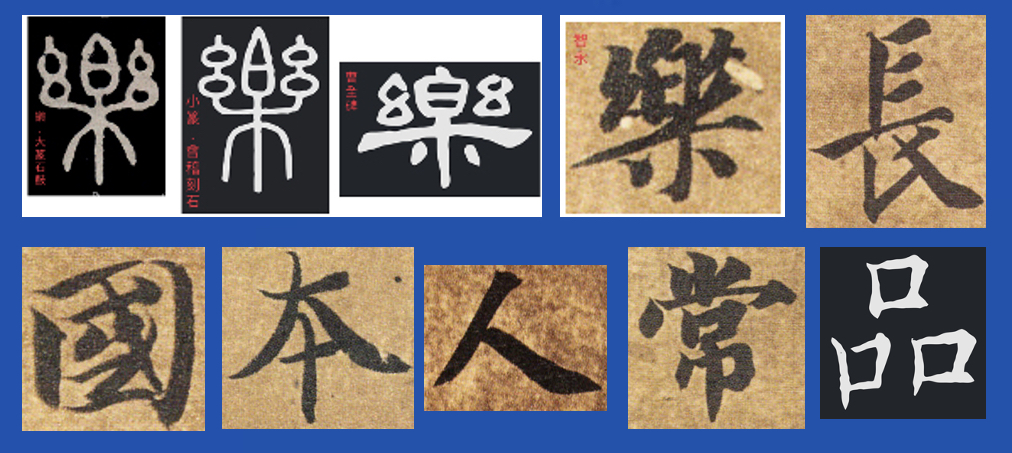 樂 大篆石鼓
樂 小篆·會稽刻石
樂 曹全碑
樂 智永
長
國 本 人 常 品